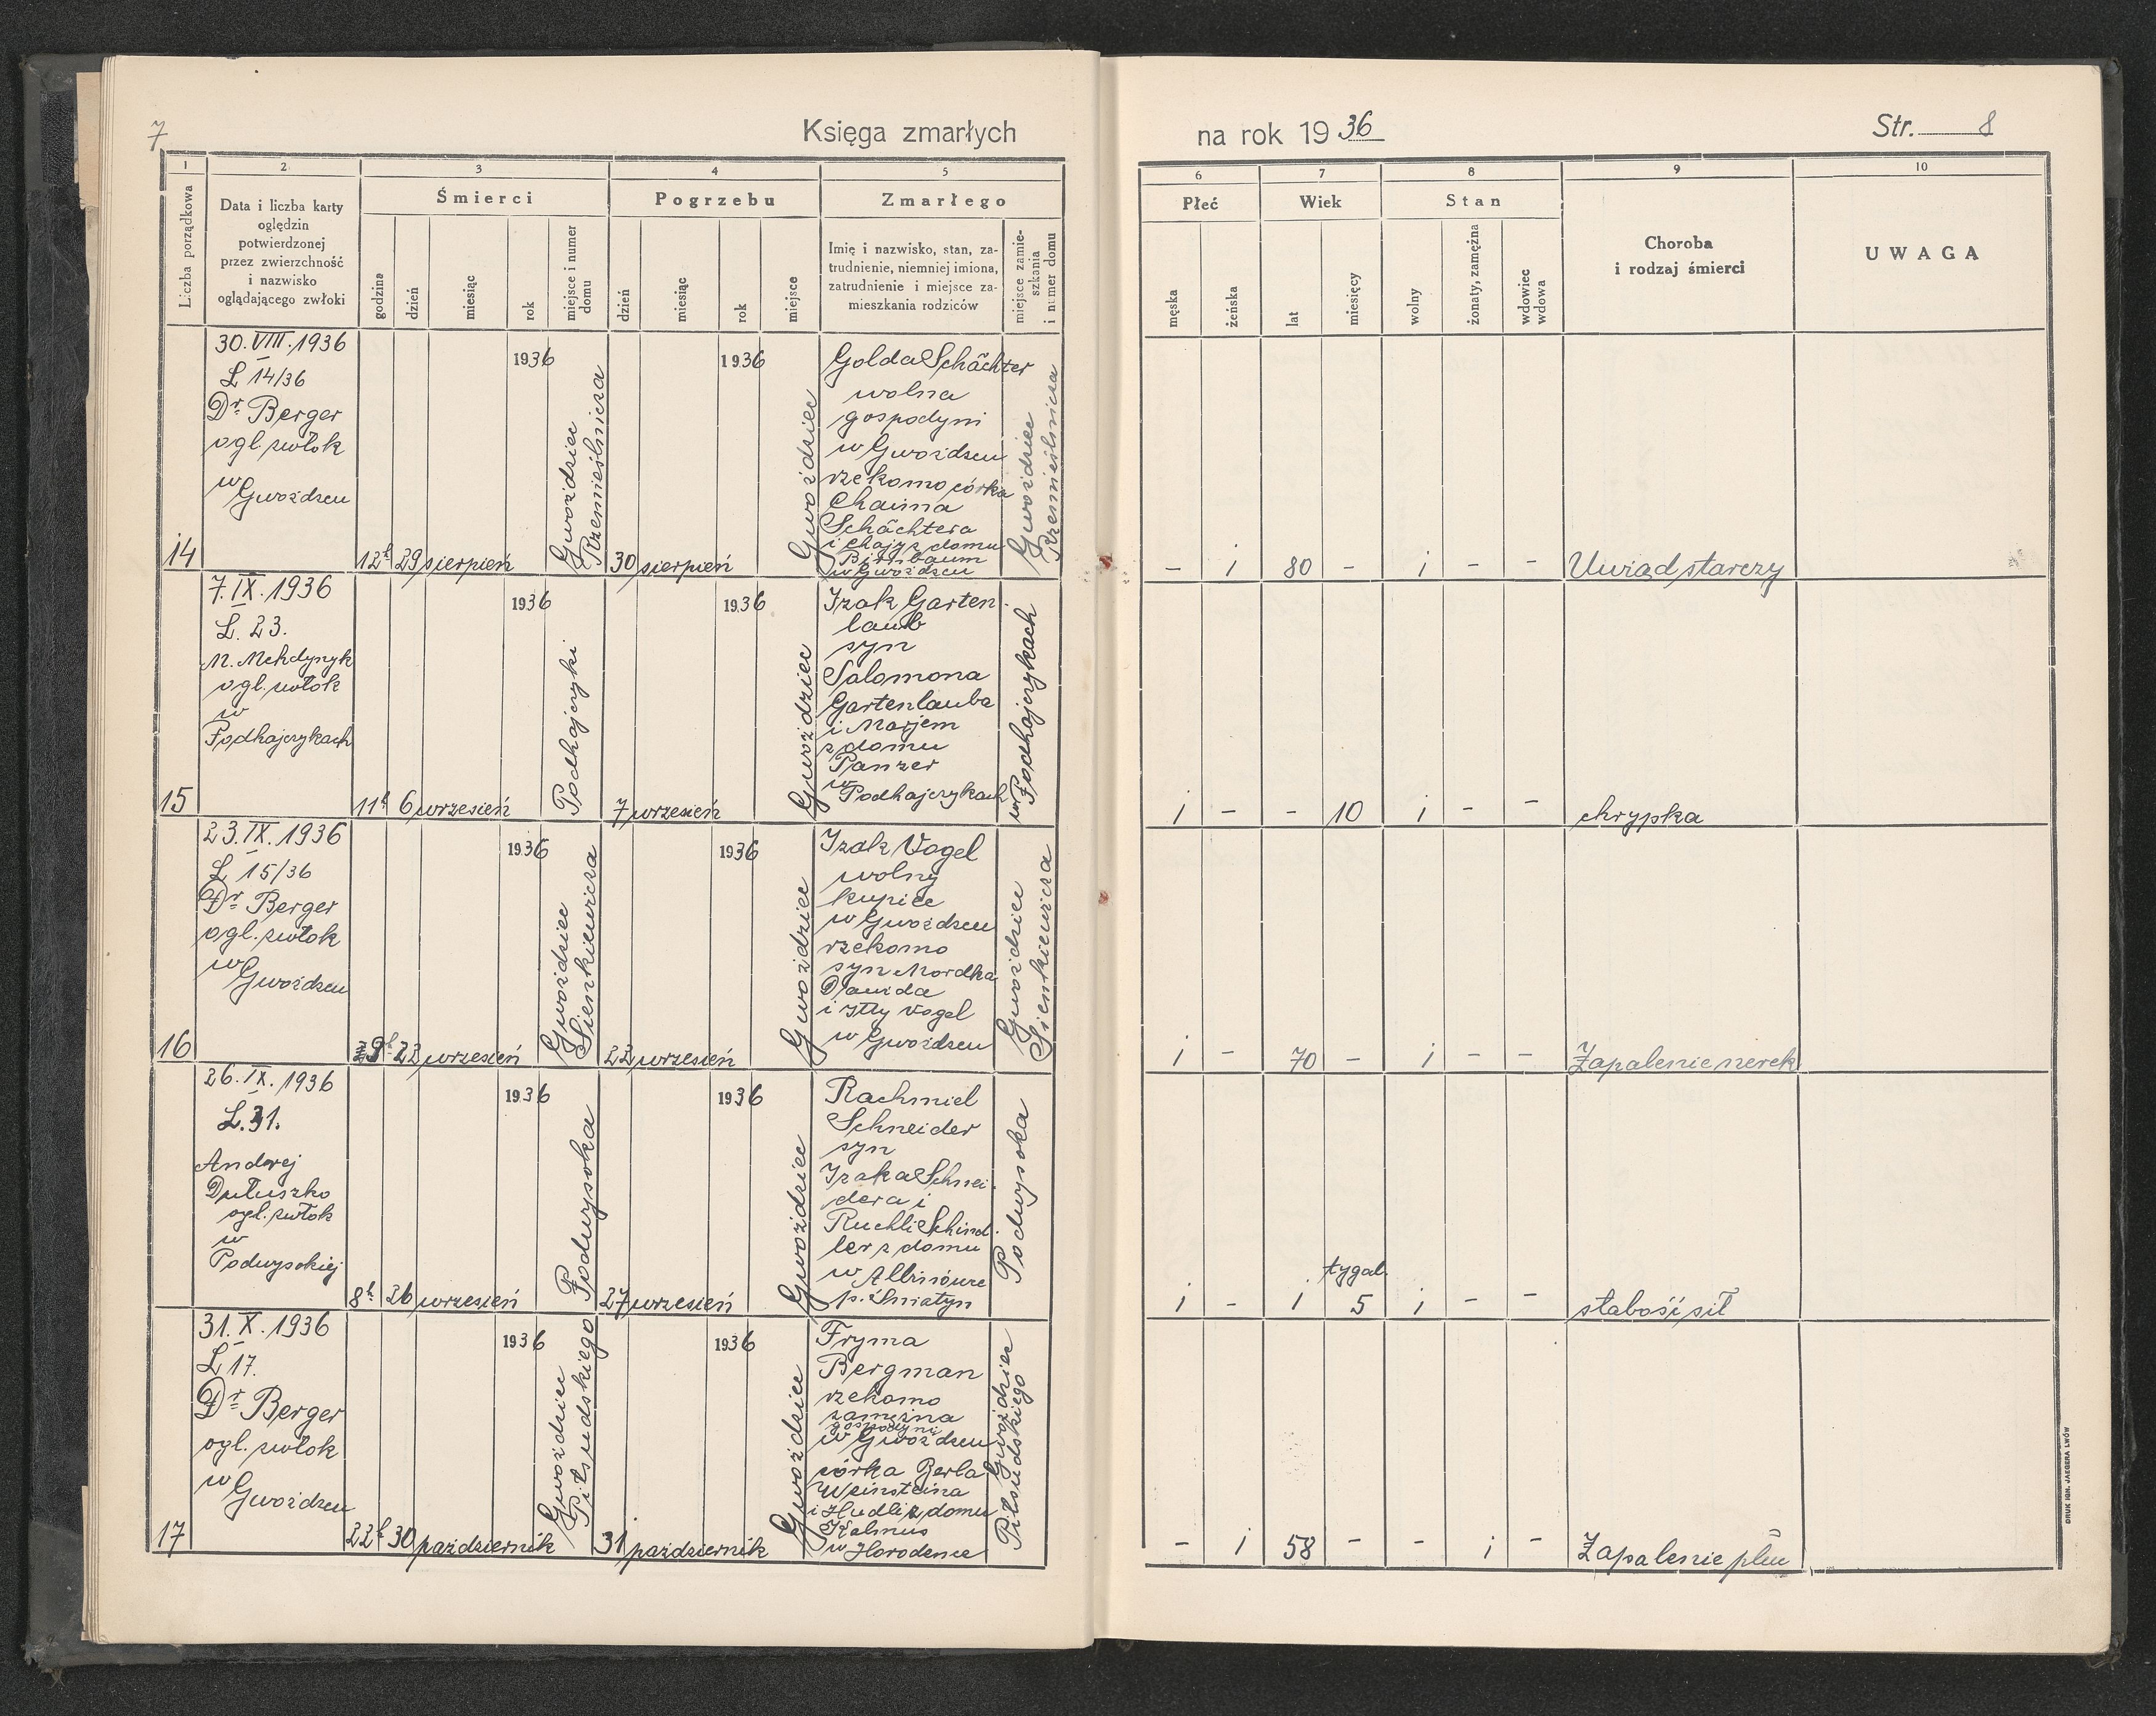 7
Księga zmarłych
na rok 1936
Str. 8
1
2
3
4
5
6
7
8
9
10
Liczba porządkowa
Data i liczba karty
oględzin
potwierdzonej
przez zwierzchność
i nazwisko
oglądającego zwłoki
Śmierci
godzina
dzień
miesiąc
rok
miejsce i numer
domu
Pogrzebu
dzień
miesiąc
rok
miejsce
Zmarłego
Imię i nazwisko, stan, za-
trudnienie, niemniej imiona,
zatrudnienie i miejsce za-
mieszkania rodziców
miejsce zamie-
szkania
i numer domu
Płeć
męska
żeńska
Wiek
lat
miesięcy
Stan
wolny
żonaty, zamężna
wdowiec
wdowa
Choroba
i rodzaj śmierci
UWAGA
14
30.VIII.1936
L 14/36
Dr Berger
ogl. zwłok
w
Gwoźdzcu
12h 29 sierpień
1936
Gwoździec
Rzemieślnicza
30 sierpień
1936
Gwoździec
Golda Schächter
wolna
gospodyni
w Gwoźdzcu
rzekomo córka
Chaima
Schächtera
i Chaji z domu
Birnbaum
w Gwoźdzcu
Gwoździec
Rzemieślnicza
- i 80 - i - -
Uwiąd starczy
15
7.IX.1936
L. 23.
ogl. zwłok
w
Podhajczykach
11h 6 wrzesień
1936
Podhajczyki
7 wrzesień
1936
Gwoździec
Izak Garten-
laub
syn
Salomona
Gartenlauba
i Marjem
z domu
Panzer
w
Podhajczykach
w Podhajczykach
i - - 10 i - -
chrypka
16
23.IX.1936
L 15/36
Dr Berger
ogl. zwłok
w
Gwoźdzcu
9h 22 wrzesień
1936
Gwoździec
Sienkiewicza
22 wrzesień
1936
Gwoździec
Izak Vogel
wolny
kupiec
w Gwoźdzcu
rzekomo
syn Mordka
Dawida
i Itty Vogel
w Gwoźdzcu
Gwoździec
Sienkiewicza
i - 70 - i - -
Zapalenie nerek
26.IX.1936
L. 31.
Andrej
Dutuszko
ogl. zwłok
w
Podwysokiej
8h 26 wrzesień
1936
Podwysoka
27 wrzesień
1936
Gwoździec
Rachmiel
Schneider
syn
Izaka Schnei-
dera i
Ruchli Schind-
ler z domu
w
p. Śniatyn
Podwysoka
i - i tygod. 5 i - -
słabość sił
17
31.X.1936
L 17.
Dr Berger
ogl. zwłok
w
Gwoźdzcu
22h 30 październik
1936
Gwoździec
Piłsudskiego
31 październik
1936
Gwoździec
Fryma
Bergman
rzekomo
zamężna
gospodyni
w Gwoźdzcu
córka Berla
Weinsteina
i Hudli z domu
Kalmus
w Horodence
Gwoździec
Piłsudskiego
- i 58 - - i -
Zapalenie płuc
DRUK IGN. JAEGERA LWÓW